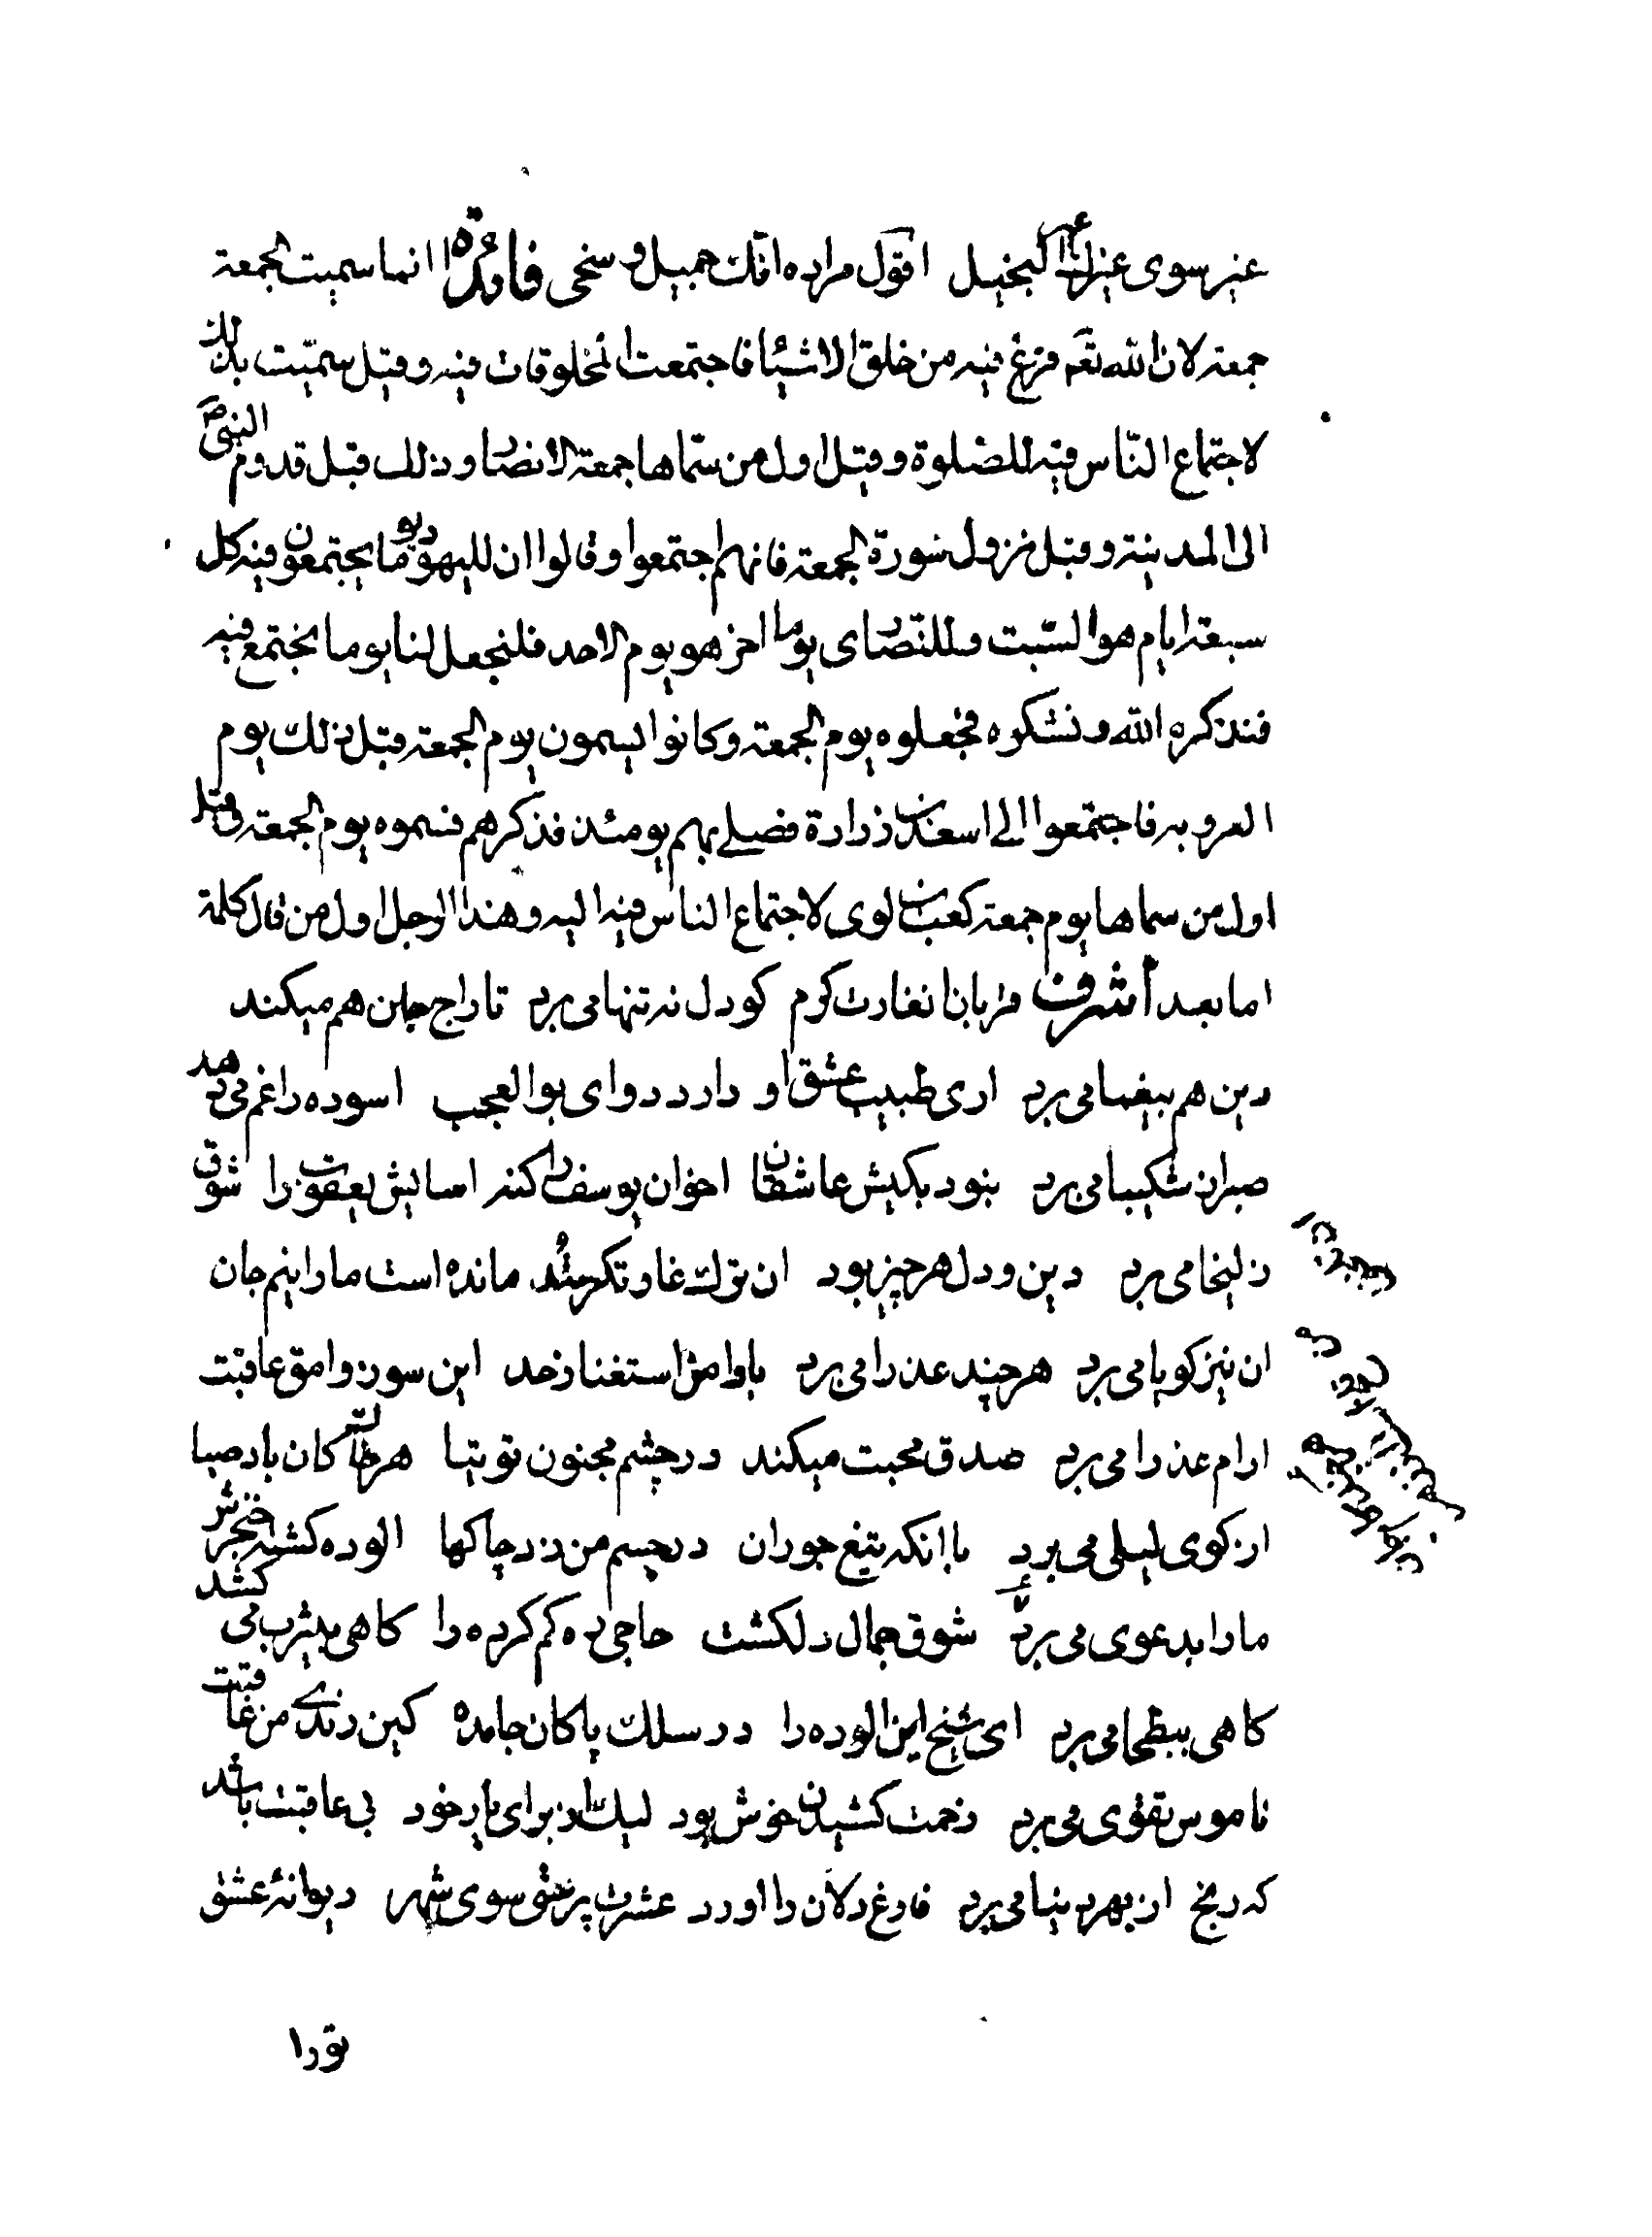 غیر سوی غیر انک البخیل اقول مراده انک جمیل و سخی فائدة انما سمیت الجمعة
جمعة لان الله تعم فرغ فیه من خلق الاشیئا فاجتمعت المخلوقات فیه و قیل سمّیت بذلک
لاجتماع النّاس فیه للصّلوة و قیل اول من سمّاها جمعة الانصار و ذلک قبل قدوم النبی ص
الی المدینة و قبل نزول سورة الجمعة فانهم اجتمعوا و قالوا ان للیهود یوما یجتمعون فیه کل
سبعة ایام هو السّبت و للنّصاری یوما اخر هو یوم الاحد فلنجعل لنا یوما نجتمع فیه
فنذکره الله و نشکره فجعلوه یوم الجمعة و کانوا یسمون یوم الجمعة قبل ذلک یوم
العروبه فاجتمعوا الی اسعد بن زرارة فصلی بهم یومئذ فذکرهم فسموه یوم الجمعة و قیل
اول من سماها یوم جمعة کعب بن لوی لاجتماع الناس فیه الیه و هذا الرجل اول من قال کلمة
اما بعد أشرف قربان غارت کرم کو دل نه تنها می برد تاراج جان هم میکند
دین هم بیغما می برد اری طبیب عشق او دارد دوای بوالعجب اسوده را غم می دهد
صبر از شکیبا می برد نبود بکیش عاشقان اخوان یوسف را کنه اسایش یعقوب را شوق
زلیخا می برد دین و دل هر چیز بود ان ترک غارتکر ستد مانده است ما را نیم جان
ان نیز کویا می برد هر چند عذرا می برد با وامق استغنا ز حد این سوز وامق عاقبت
ارام عذرا می برد صدق محبت میکند در چشم مجنون توتیا هر خاک کان باد صبا
از کوی لیلی می برد با انکه تیغ جور ان در جسم من زد چاکها الوده کشته خنجرش
ما را بدعوی می برد شوق جمال دلکشت حاجی ره کم کرده را کاهی بیثرب می کشد
کاهی ببطحا می برد ای شیخ این الوده را در سلک پاکان جا مده کین رندی من عاقبت
ناموس تقوی می برد زحمت کشیدن خوش بود لیک از برای یار خود بی عاقبت باشد
که رنج از بهر دنیا می برد فارغ دلان را اورد عشرت پرستی سوی شهر دیوانهٔ عشق
تو را